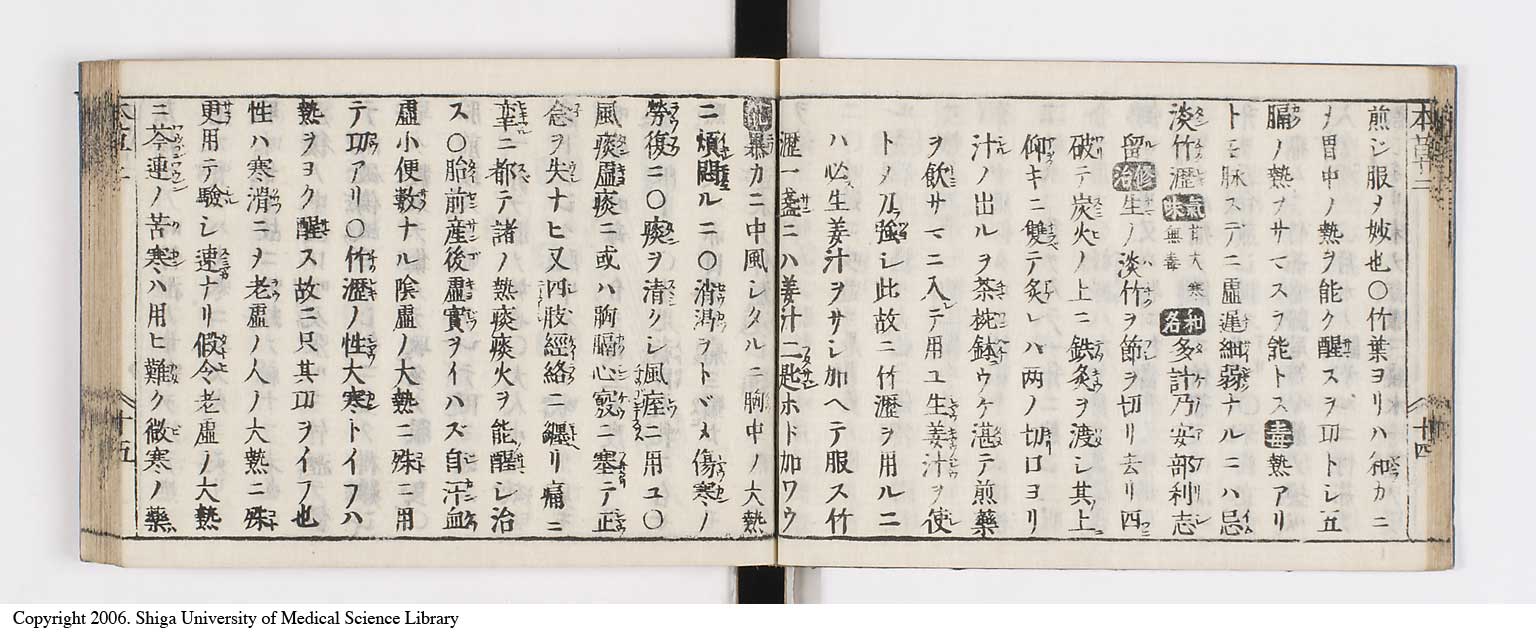 煎シ服ヲ妙也〇竹葉ヨリハ和カニ
〆胃中ノ熱ヲ能ク醒スヲ功トレ五
臓ノ熱ヲサマスヲ能トス毒熱アリ
トモ脉ステニ虚遅細弱ナルニハ忌
淡竹瀝氣味甘大寒無毒和名多計乃安部利志
留修治生ノ淡竹ヲ節ヲ切リ去リ四
破テ炭火ノ上ニ鉄灸ヲ渡シ其上
仰キニ雙テ炙レハ両ノ切口ヨリ
汁ノ出ルヲ茶椀鉢ウケ湛テ煎藥
ヲ飲サマニ入テ用ユ生姜汁ヲ使
トメ乃強シ此故ニ竹瀝ヲ用ルニ
ハ必生姜汁ヲサシ加ヘテ服ス竹
瀝一盞ニハ姜汁二匙ホド加ワウ
能暴カニ中風シタルニ胸中ノ大熱
ニ煩悶ルニ〇消渇ヲトドメ傷寒ノ
勞復ニ〇痰ヲ清クシ風痙ニ用ユ〇
風痰虚痰ニ或ハ胸膈心竅ニ塞テ正
念ヲ失ナヒ又四肢經絡ニ纒リ痛ニ
幸ニ都テ諸ノ熱痰痰火ヲ能醒レ治
ス〇胎前産後虚實ヲイハズ自汗血
虚小便数ナル陰虚ノ大熱ニ殊ニ用
テ功アリ〇竹瀝ノ性大寒トイフハ
熱ヲヨク醒ス故ニ只其功ヲイフ也
性ハ寒滑ニメ老虚ノ人ノ大熱ニ殊
更用テ驗シ速ナリ假令老虚ノ大熱
ニ芩連ノ苦寒ハ用ヒ難ク微寒ノ藥
十四
十五
Copyright 2006. Shiga University of Medical Science Library